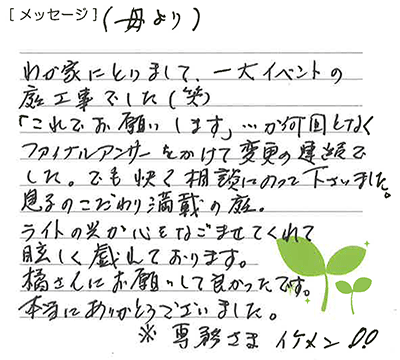 [ メッセージ ] (母より)
わが家にとりまして、一大イベントの
庭工事でした(笑)
「これでお願いします」…が何回となく
ファイナルアンサーをかけて変更の連続で
した。でも快く相談にのって下さいました。
息子のこだわり満載の庭。
ライトの光が心をなごませてくれて
眩しく戯れております。
橘さんにお願いして良かったです。
本当にありがとうございました。
※ 専務さま イケメン